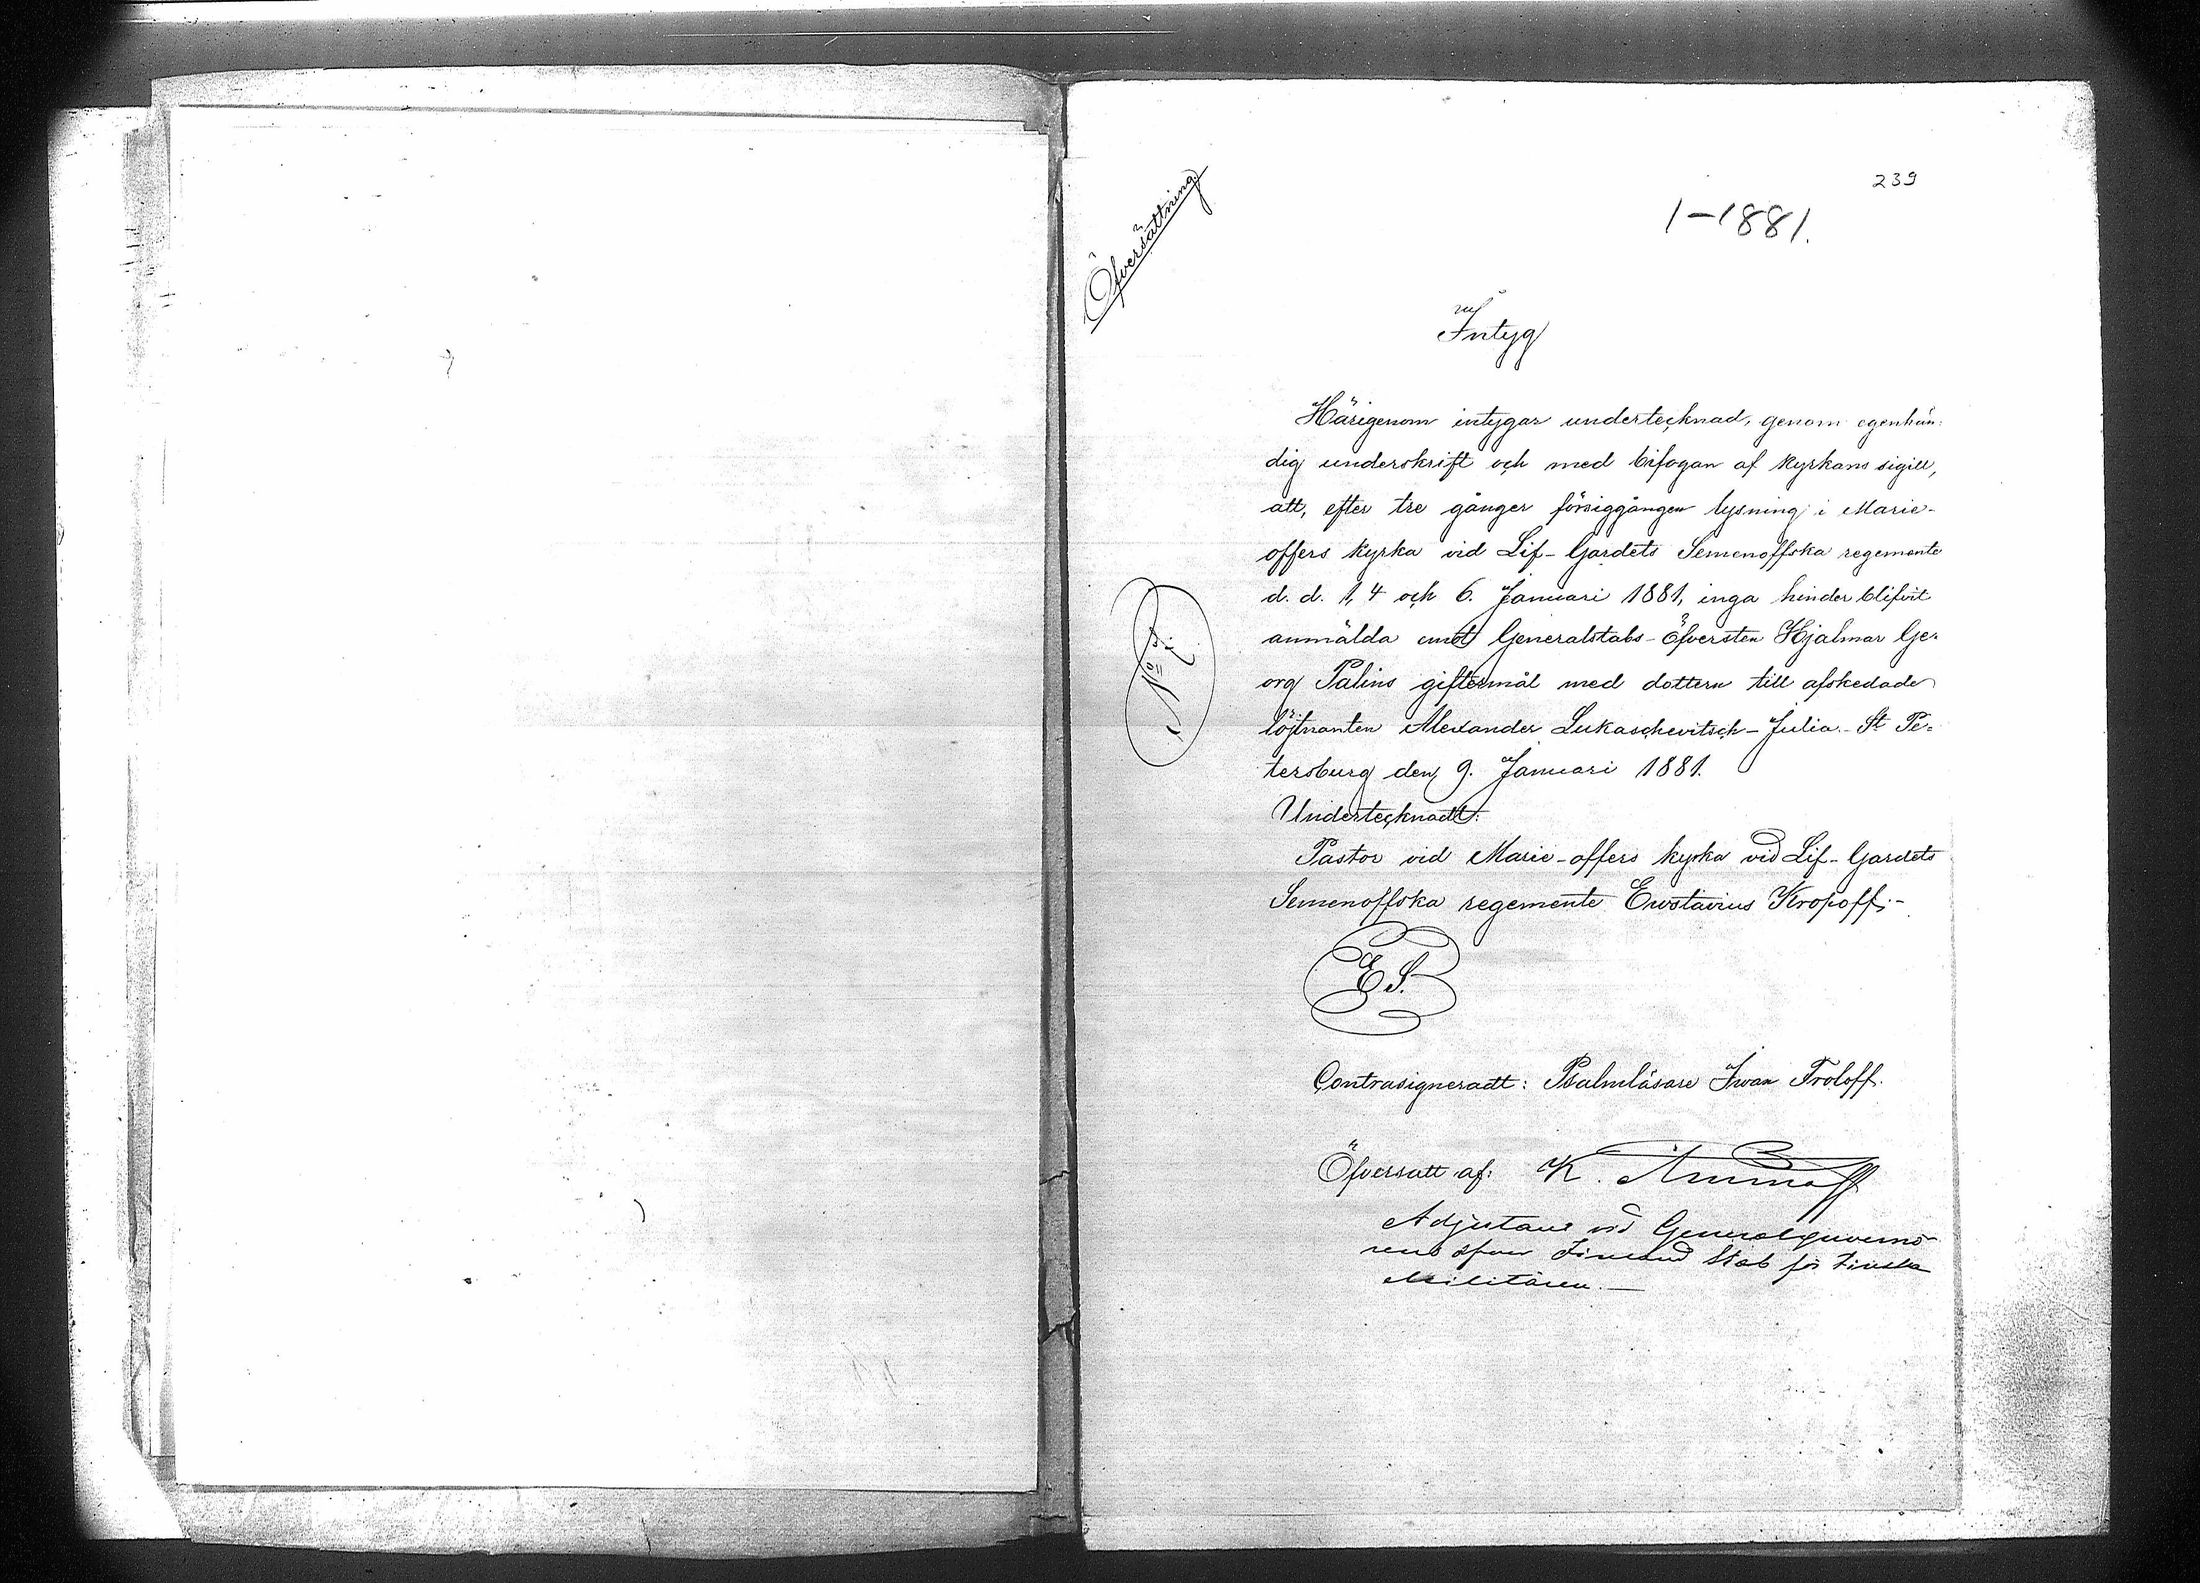 239
1-1881.
Öfversättning
Intyg
Härigenom intygar undertecknad, genom egenhän-
dig underskrift och med bifogan af kyrkans sigill,
att, efter tre gånger försiggången lysning i Marie-
offers kyrka vid Lif-Gardets Semenoffska regemente
d. d. 1, 4 och 6. Januari 1881, inga hinder blifvit
anmälda emot Generalstabs-Öfversten Hjalmar Ge-
org Palins giftermål med dottern till afskedade
löjtnanten Alexander Lukaschevitsch-Julia.- St Pe-
tersburg den 9. Januari 1881.
Undertecknadt:
Pastor vid Marie-offers kyrka vid Lif-Gardets
Semenoffska regemente Ewstavius Kropoff.-
No
E S.
Contrasigneradt: Psalmläsare Iwan Froloff.
Öfversatt af: K. Aminoff
Adjutant vid Generalguvernö-
rens öfver Finland Stab för Finska
Militären.-